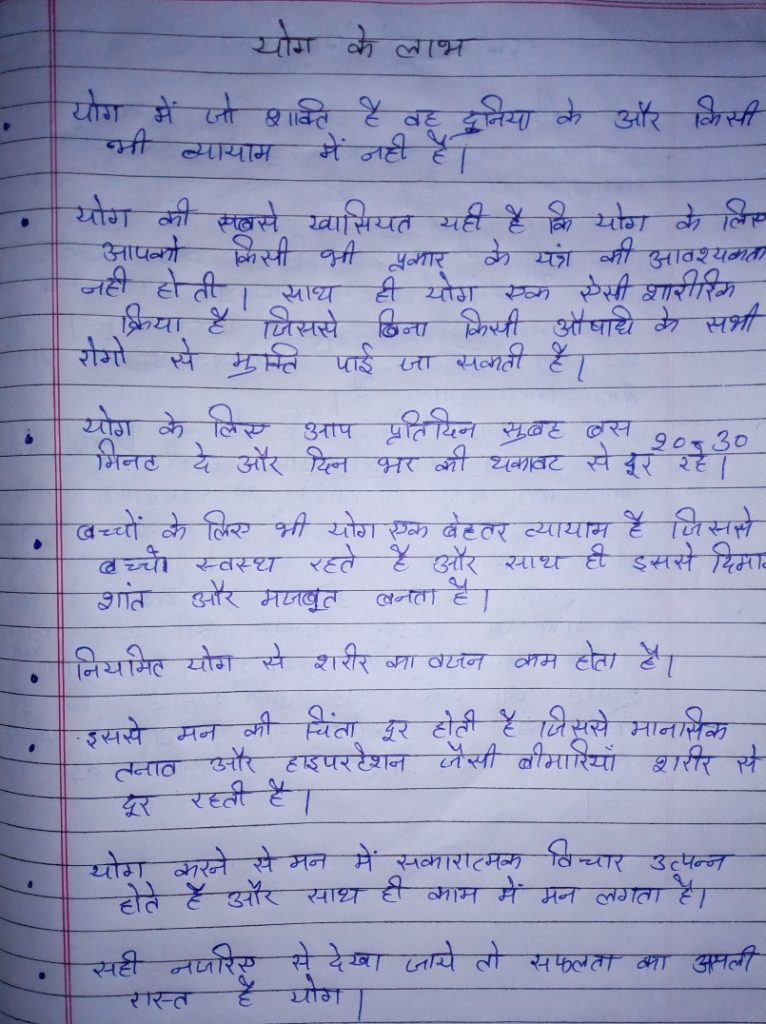 योग के लाभ
योग में जो शक्ति है वह दुनिया के और किसी
भी व्यायाम में नही है।
योग की सबसे खासियत यही है कि योग के लिए
आपको किसी भी प्रकार के यंत्र की आवश्यकता
नही होती। साथ ही योग एक ऐसी शारीरिक
क्रिया है जिससे बिना किसी औषधि के सभी
रोगो से मुक्ति पाई जा सकती है।
योग के लिए आप प्रतिदिन सुबह बस 20-30
मिनट दे और दिन भर की थकावट से दूर रहे।
बच्चों के लिए भी योग एक बेहतर व्यायाम है जिससे
बच्चो स्वस्थ रहते है और साथ ही इससे दिमाग
शांत और मजबूत बनता है।
नियमित योग से शरीर का वजन कम होता है।
इससे मन की चिंता दूर होती है जिससे मानसिक
तनाव और हाइपरटेशन जैसी बीमारियाँ शरीर से
दूर रहती है।
योग करने से मन में सकारात्मक विचार उत्पन्न
होते है और साथ ही काम में मन लगता है।
सही नजरिए से देखा जाये तो सफलता का असली
रास्त है योग।